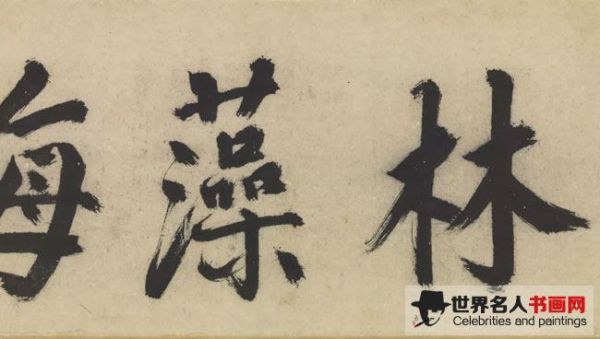 林藻海
世界名人书画网
Celebrities and paintings